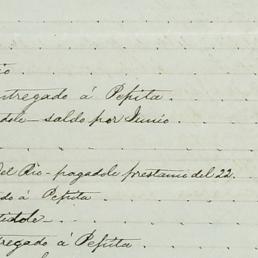 io.
ntregado á Pepita.
dole - saldo por Junio
del Rio - pagadole prestamo del 22.
do á Pepita.
tidole
tregado á Pepita.